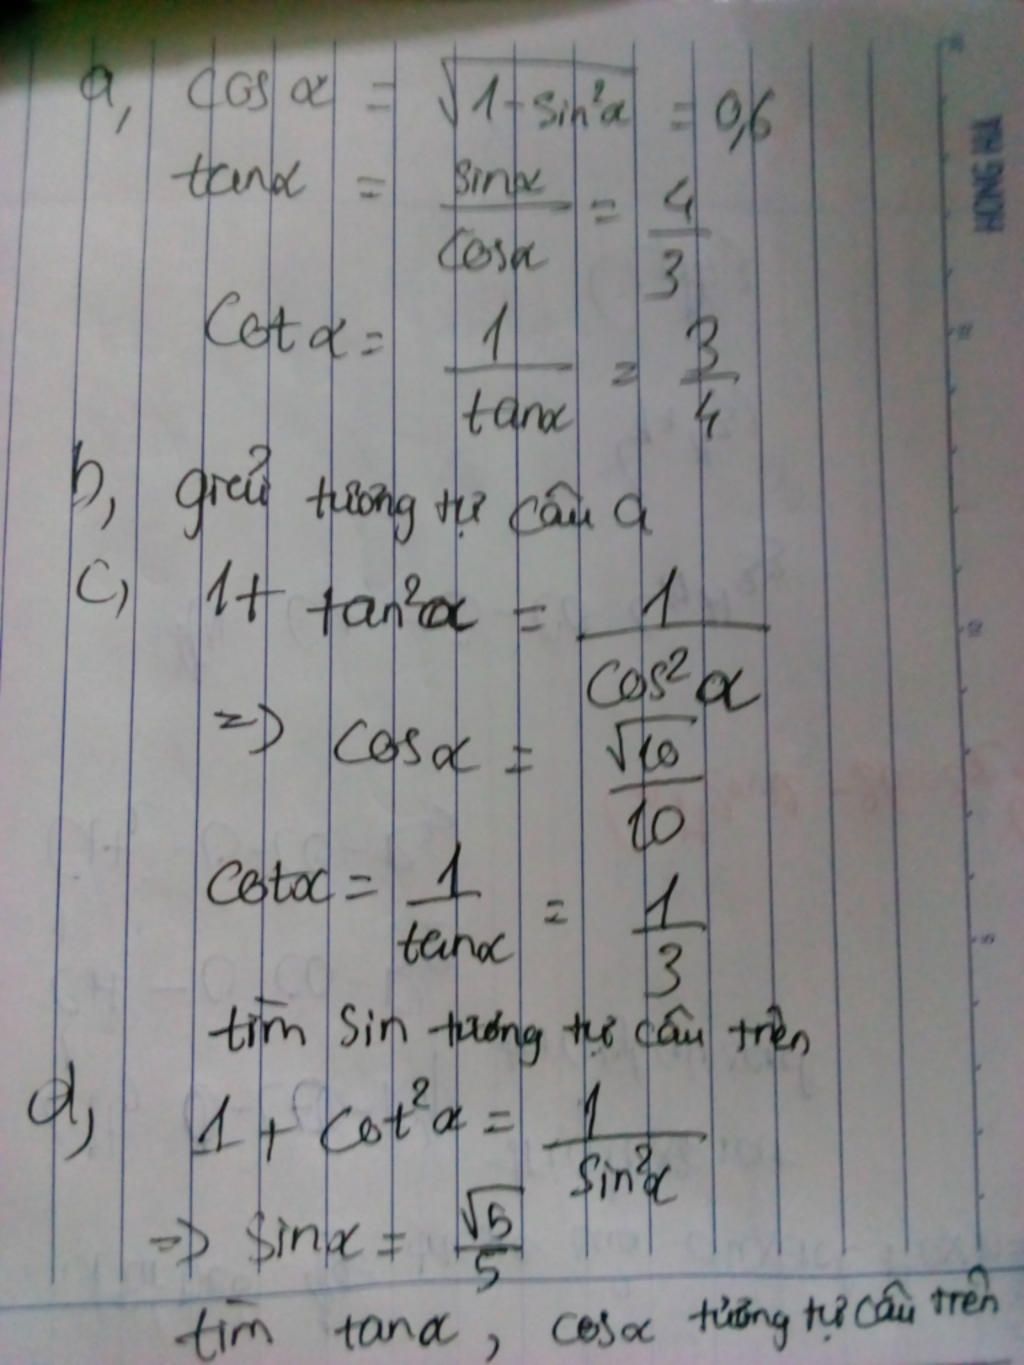 a, cosα = √1-sin²α = 0,6
tanα = sinα/cosα = 4/3
Cotα = 1/tanα = 3/4
b, giải tương tự câu a
c, 1+ tan²α = 1/cos²α
=> cosα = √10/10
cotα = 1/tanα = 1/3
tìm sin tương tự câu trên
d, 1 + cot²α = 1/sin²α
=> sinα = √5/5
tìm tanα, cosα tương tự câu trên
HONG HA